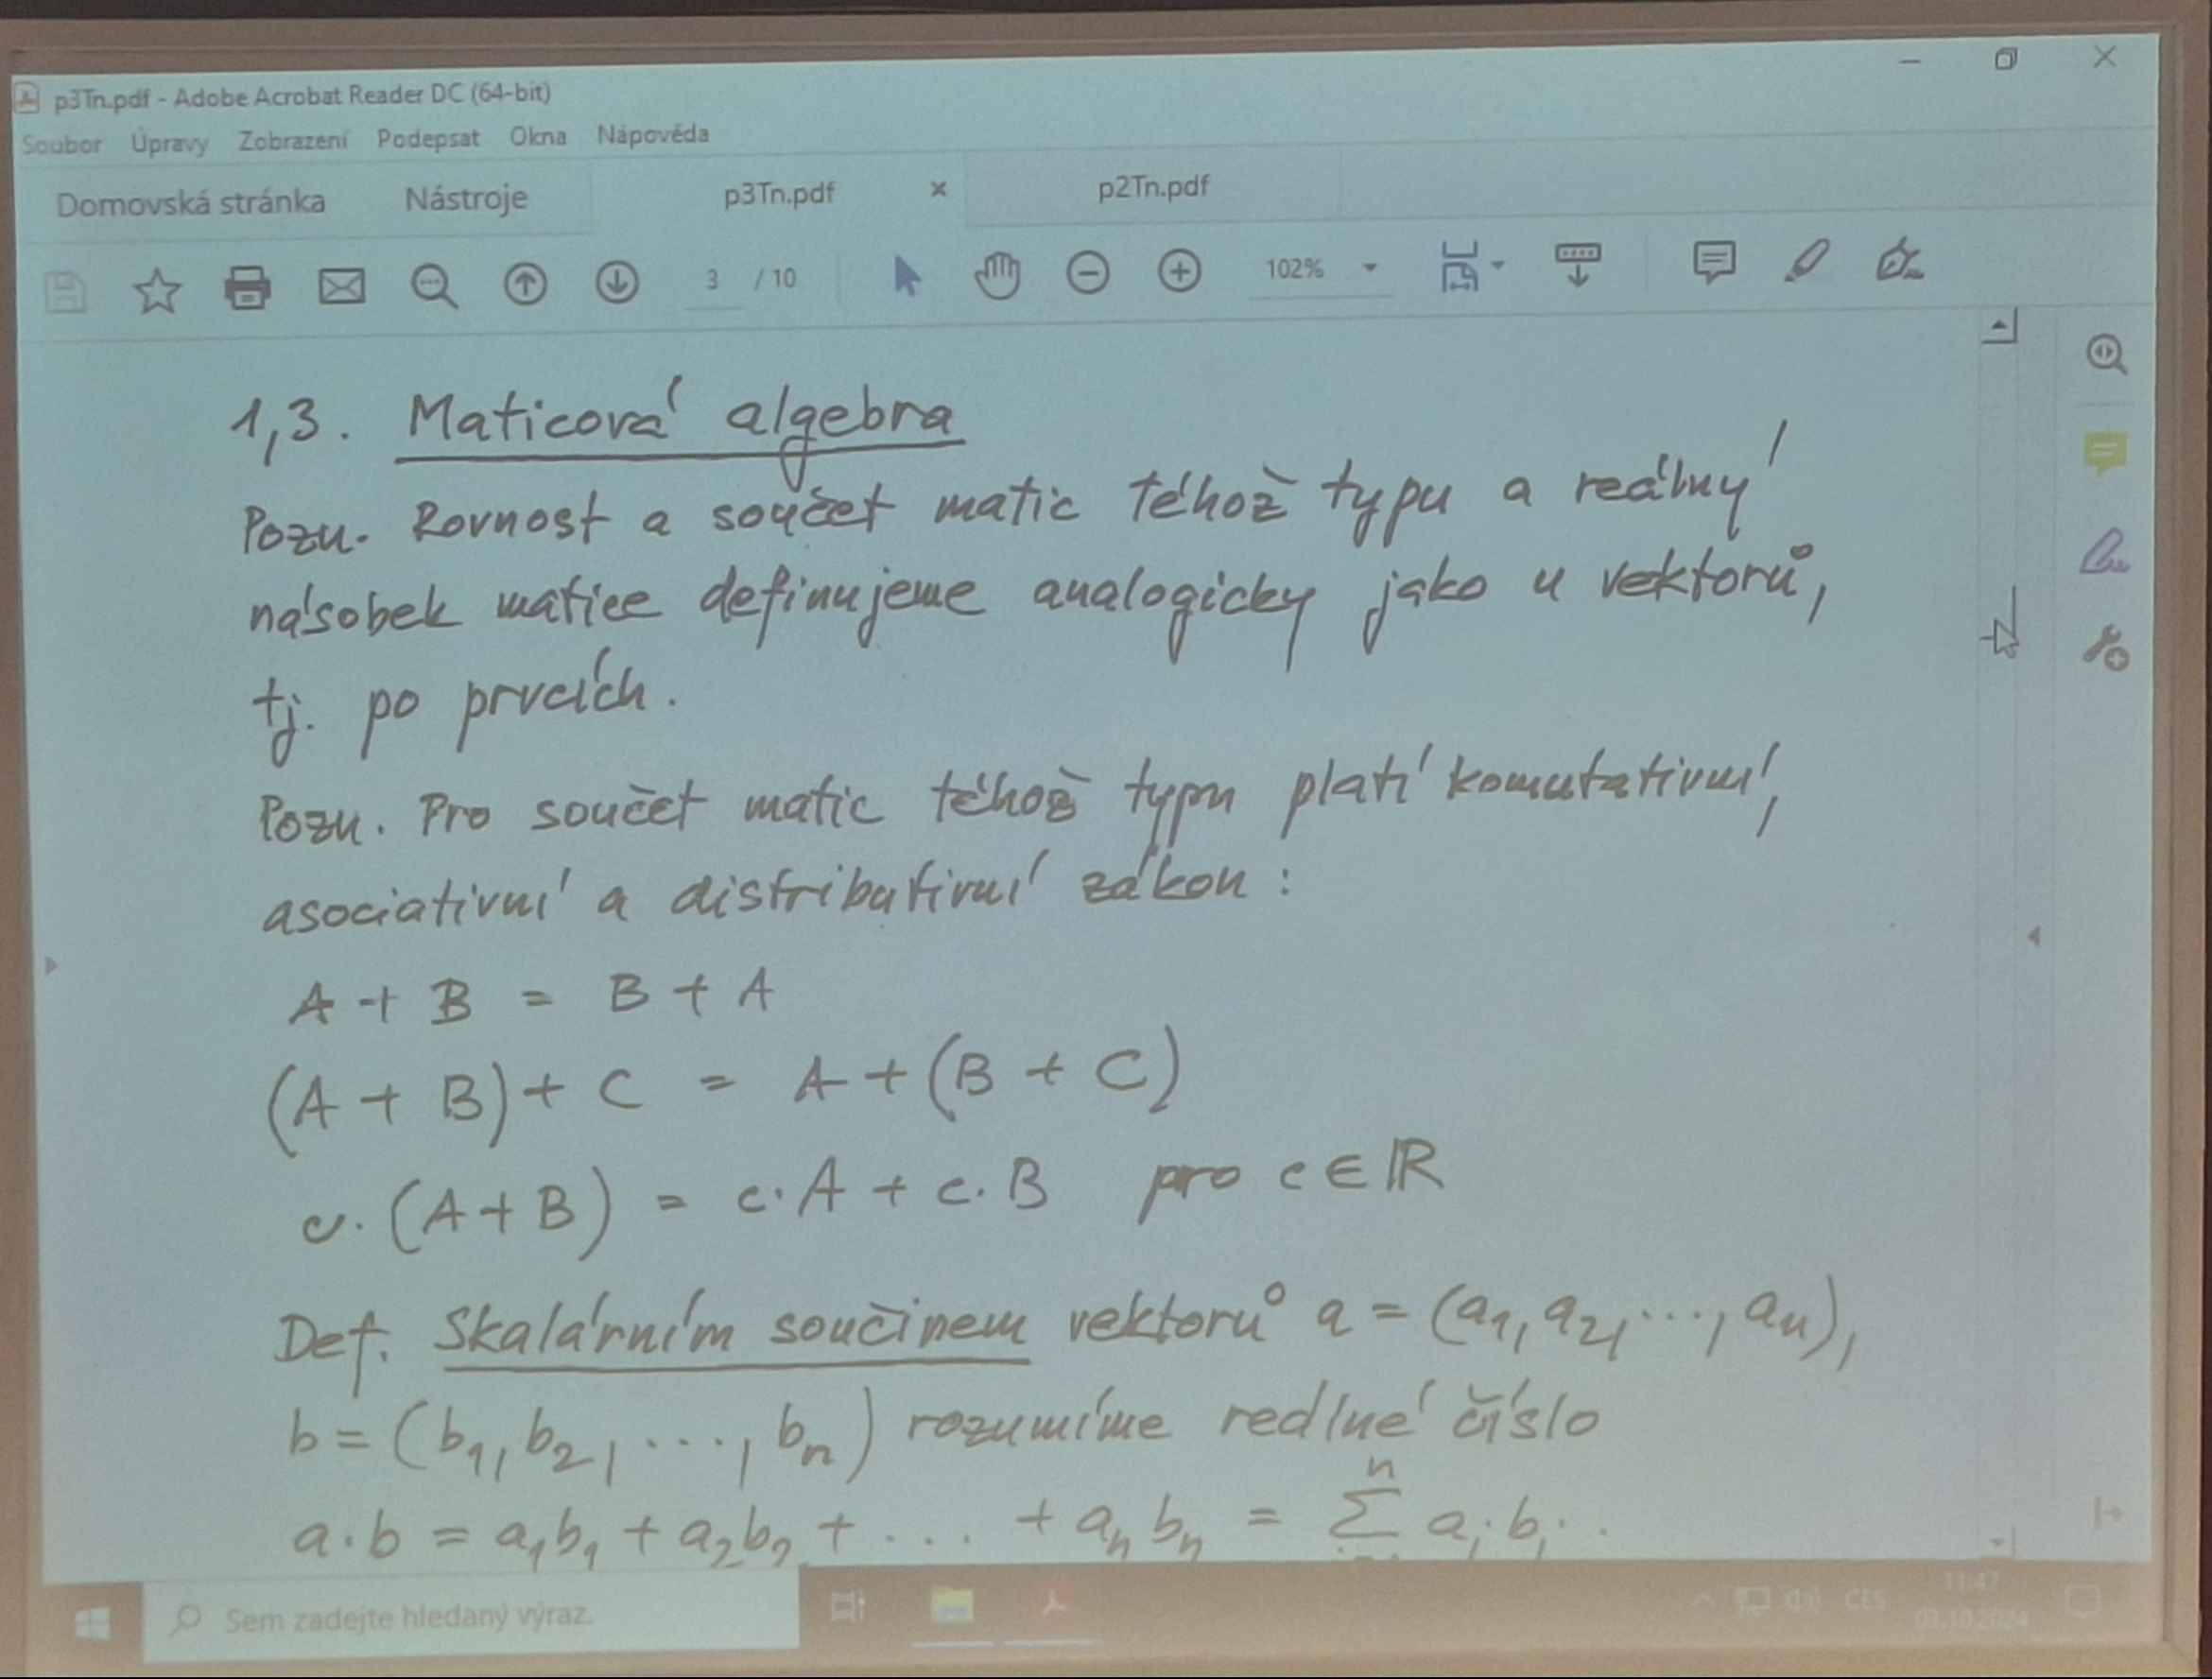 p3Tn.pdf - Adobe Acrobat Reader DC (64-bit)
Soubor Úpravy Zobrazení Podepsat Okna Nápověda
Domovská stránka Nástroje p3Tn.pdf × p2Tn.pdf
3 / 10 102%
1,3. Maticová algebra
Pozn. Rovnost a součet matic téhož typu a reálný
násobek matice definujeme analogicky jako u vektorů,
tj. po prvcích.
Pozn. Pro součet matic téhož typu platí komutativní,
asociativní a distributivní zákon:
A + B = B + A
(A + B) + C = A + (B + C)
c. (A + B) = c. A + c. B pro c ∈ ℝ
Def. Skalárním součinem vektorů a = (a₁, a₂, ..., aₙ),
b = (b₁, b₂, ..., bₙ) rozumíme reálné číslo
a.b = a₁b₁ + a₂b₂ + ... + aₙbₙ = Σ n aᵢ bᵢ.
Sem zadejte hledaný výraz.
CES
11:47
03.10.2024